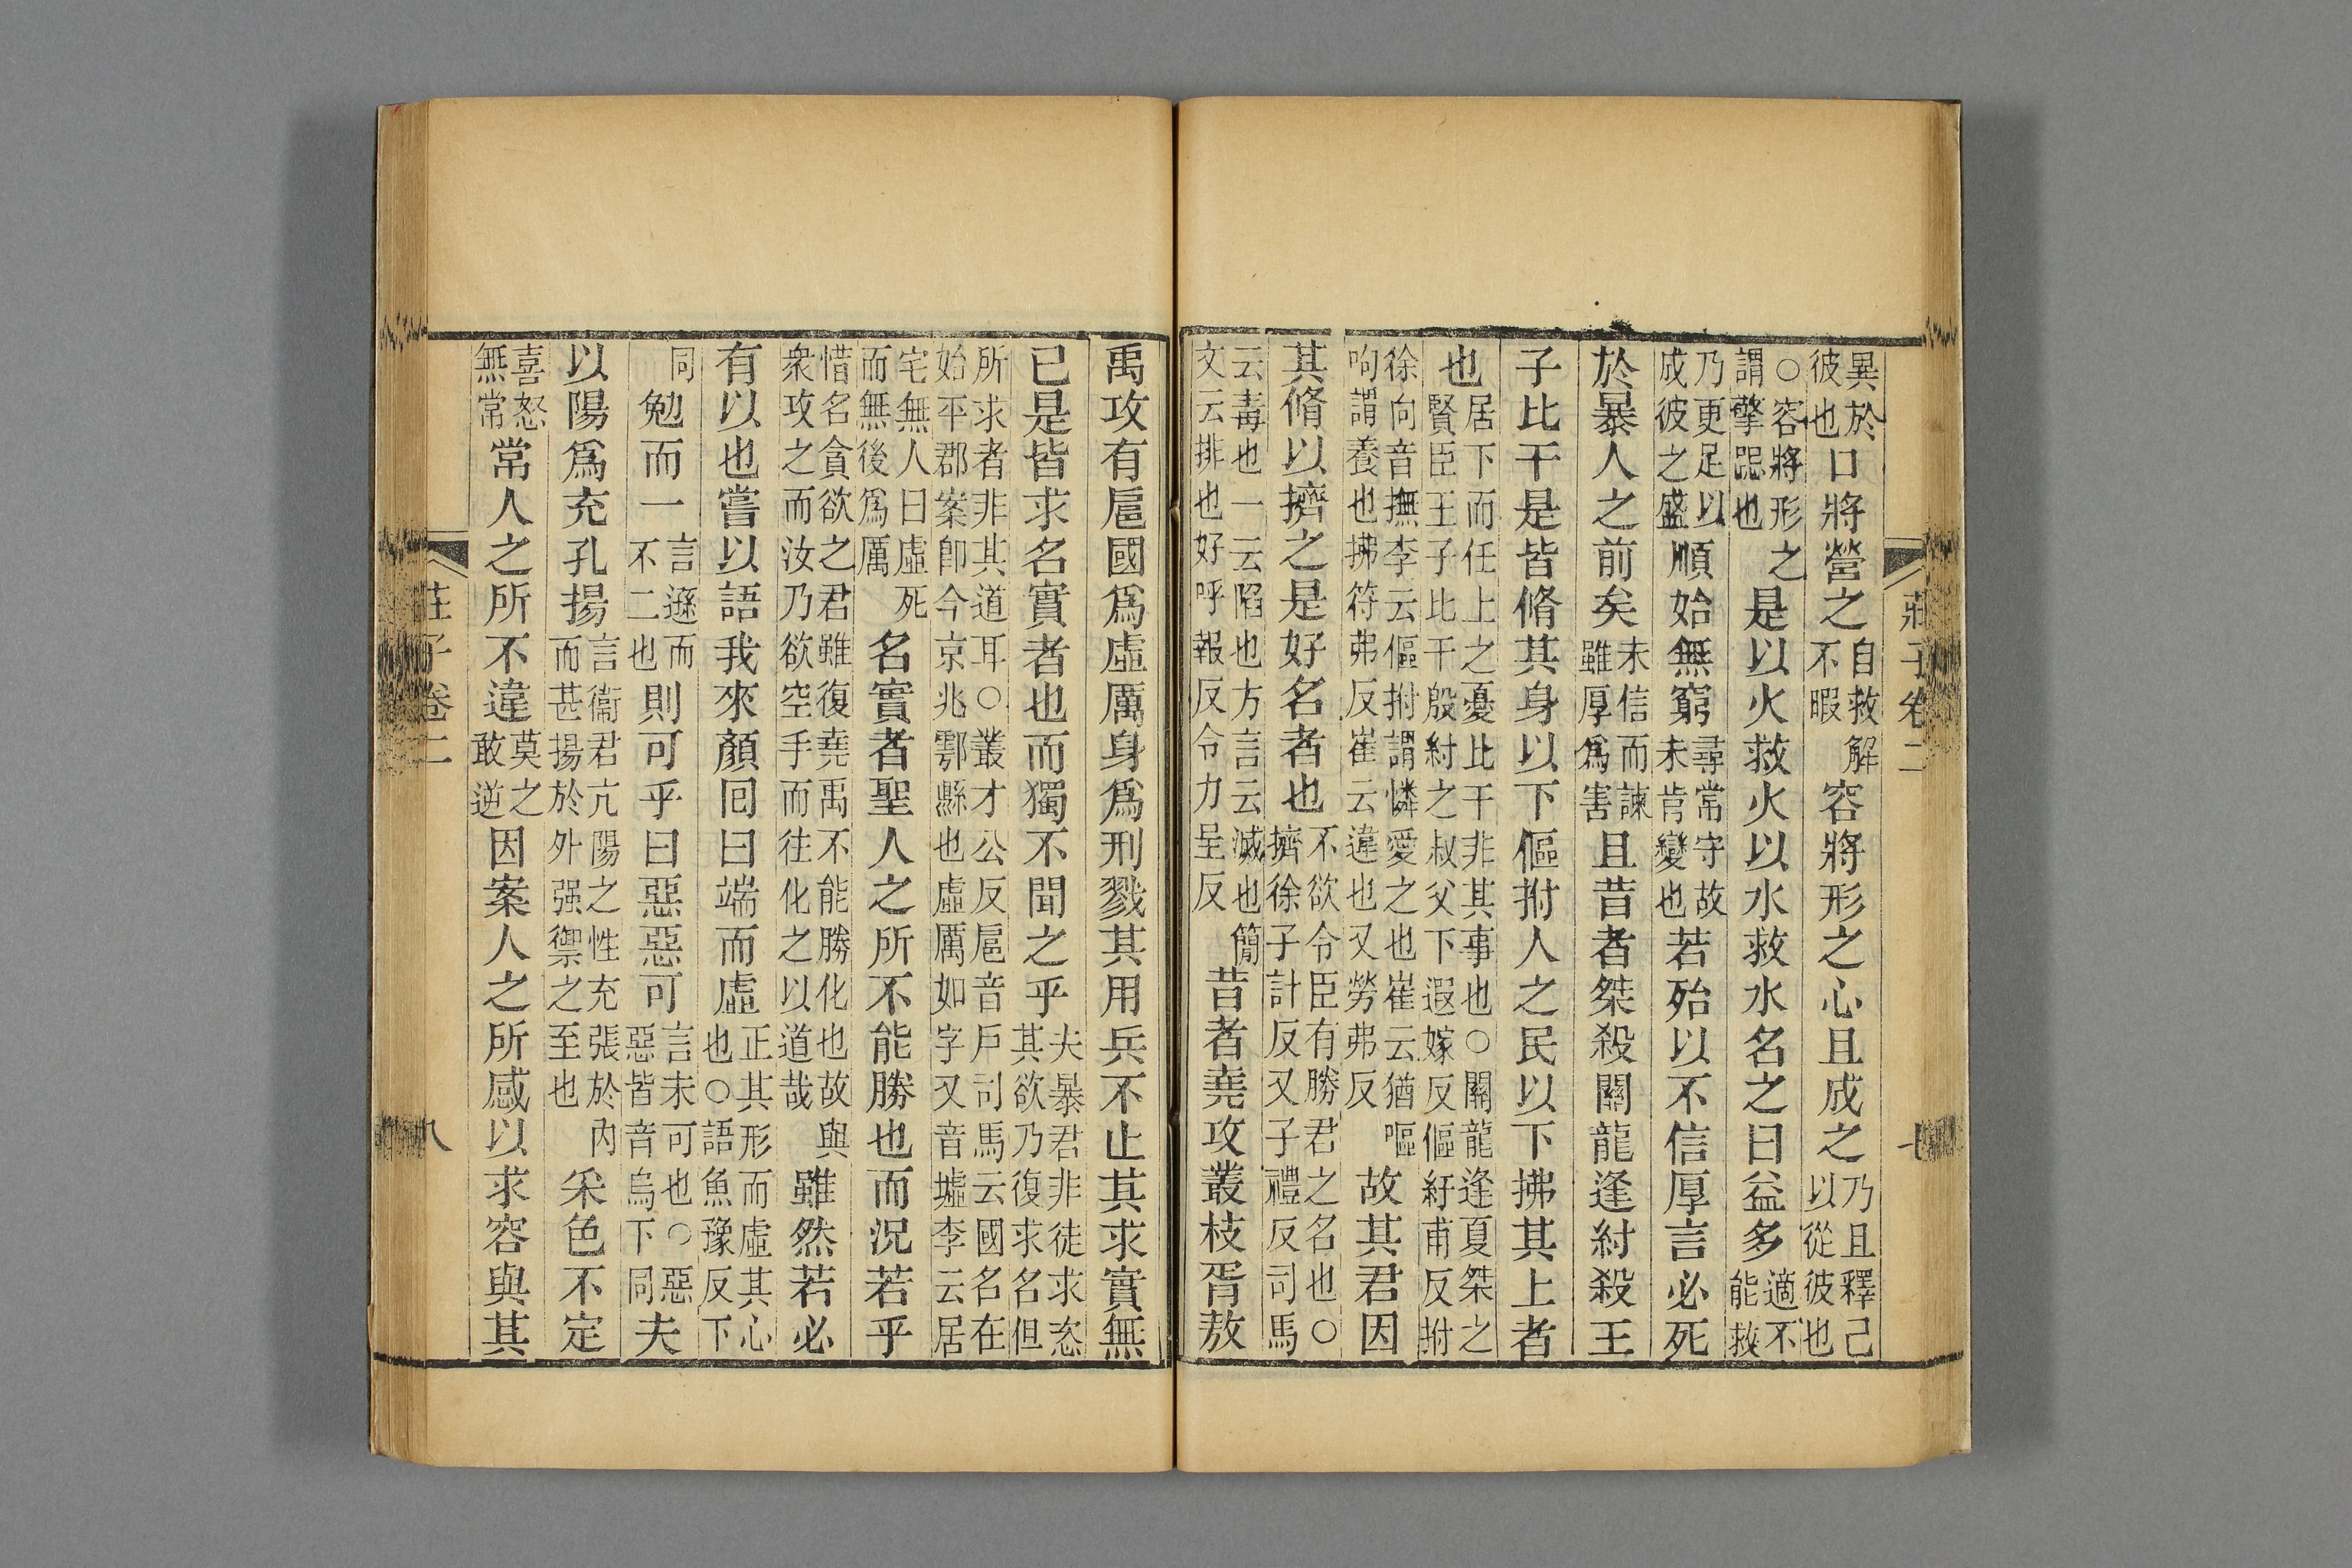 異於彼也口將營之自救解不暇容將形之心且成之乃且釋己以從彼也
○容將形之謂擎跽也是以火救火以水救水名之曰益多適不能救
乃更足以成彼之盛順始無窮尋常守故未肯變也若殆以不信厚言必死
於暴人之前矣未信而諫雖厚爲害且昔者桀殺關龍逢紂殺王
子比干是皆脩其身以下傴拊人之民以下拂其上者
也居下而任上之憂比干非其事也○關龍逢夏桀之賢臣王子比干殷紂之叔父下遐嫁反傴紆甫反拊
徐向音撫李云傴拊謂憐愛之也崔云猶嘔呴謂養也拂符弗反崔云違也又勞弗反故其君因
其脩以擠之是好名者也不欲令臣有勝君之名也○擠徐子計反又子禮反司馬
云毒也一云陷也方言云滅也簡文云排也好呼報反令力呈反昔者堯攻叢枝胥敖
莊子卷二
七
禹攻有扈國爲虛厲身爲刑戮其用兵不止其求實無
已是皆求名實者也而獨不聞之乎夫暴君非徒求恣其欲乃復求名但
所求者非其道耳○叢才公反扈音戶司馬云國名在始平郡案卽今京兆鄠縣也虛厲如字又音墟李云居
宅無人曰虛死而無後爲厲名實者聖人之所不能勝也而況若乎
惜名貪欲之君雖復堯禹不能勝化也故與衆攻之而汝乃欲空手而往化之以道哉雖然若必
有以也嘗以語我來顏囘曰端而虛正其形而虛其心也○語魚豫反下
同勉而一言遜而不二也則可乎曰惡惡可言未可也○惡惡皆音烏下同夫
以陽爲充孔揚言衞君亢陽之性充張於內而甚揚於外强禦之至也采色不定
喜怒無常常人之所不違莫之敢逆因案人之所感以求容與其
莊子卷二
八